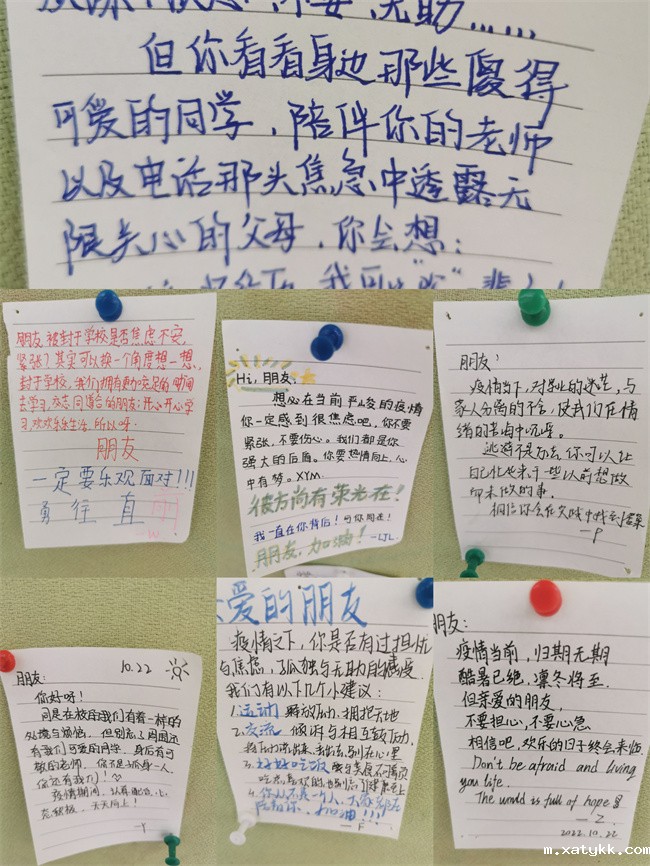 但你看看身边那些傻得
可爱的同学，陪伴你的老师
以及电话那头焦急中透露无
限关心的父母，你会想：
朋友，被封于学校是否焦虑不安，
紧张？其实可以换一个角度想一想，
封于学校，我们拥有更充足的时间
去学习，交志同道合的朋友；开心开心学
习，欢欢乐乐生活，所以呀
朋友
一定要乐观面对!!!
勇往直前
-w
Hi，朋友：
想必在当前严峻的疫情
你一定感到很焦虑吧，你不要
紧张，不要伤心。我们都是你
强大的后盾。你要热情向上，心
中有梦。XYM
彼方尚有荣光在！
我一直在你背后！可你同在！
朋友，加油！ -LJL
朋友：
疫情当下，对学业的迷茫，与
家人分离的不舍，使我们在情
绪的苦海中沉浮。
逃避不是办法，你可以让
自己忙起来干一些以前想做
却未做的事。
相信你会在实践中找到答案
-P
朋友： 10.22
你好呀！
同是在校的我们有着一样的
处境与烦恼，但别忘了周围还
有我们可爱的同学，身后有可
敬的老师，你不是孤身一人，
你还有我们！♡
疫情期间，认真
积极，天天向上！
-Y
爱的朋友
疫情之下，你是否有过担忧
与焦虑，孤独与无助的感受
我们有以下几个小建议：
1.运动 释放压力，拥抱天地
2.交流 倾诉与相互鼓励，
将压力说出来，别在心里
3.好好吃饭
4.你从不是一个人，大家都在
陪着你，加油!!!
-F
朋友：
疫情当前，归期无期
酷暑已绝，凛冬将至。
但亲爱的朋友，
不要担心，不要心急
相信吧，欢乐的日子终会来临
Don't be afraid and living
you life.
The world is full of hope
-Z
2022.10.22
m.xatykk.com